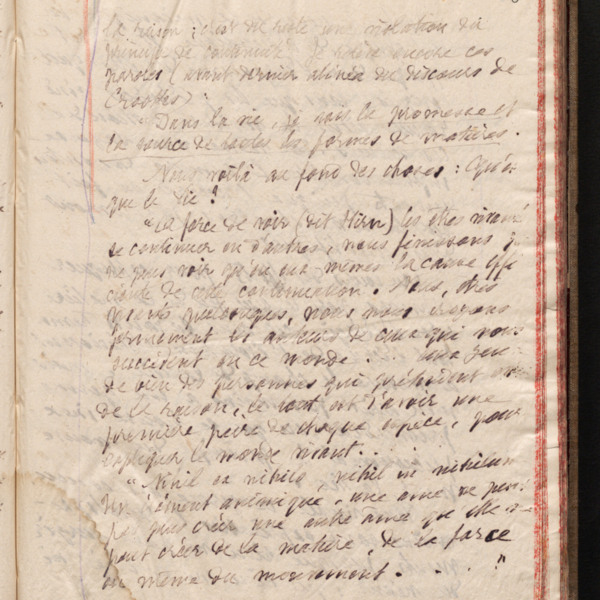 la raison ; c'est de reste une violation du
principe de continuité. Je relève encore ces
paroles (avant dernier alinéa du discours de
Crookes) :
"Dans la vie, je vois la promesse et
la source de toutes les formes de matières.
Nous voilà au fond des choses : Qu'est
que la Vie ?
"La force de voir (dit Hirn) les êtres vivants
se continuer en d'autres, nous finissons
ne plus voir qu'en eux mêmes la cause effi
ciente de cette continuation. Nous, êtres
nous nous croyons
fermement les auteurs de ceux qui nous
succèdent en ce monde . . .
de bien des personnes qui
de la raison, le tout est d'avoir une
première paire de chaque espèce, pour
expliquer le monde vivant. . . .
"Nihil ex nihilo, nihil in nihilum
Un élément animique, une âme ne peut
pas plus créer une autre âme qu'elle ne
peut créer de la matière, de la force
ou même du mouvement. . . . "